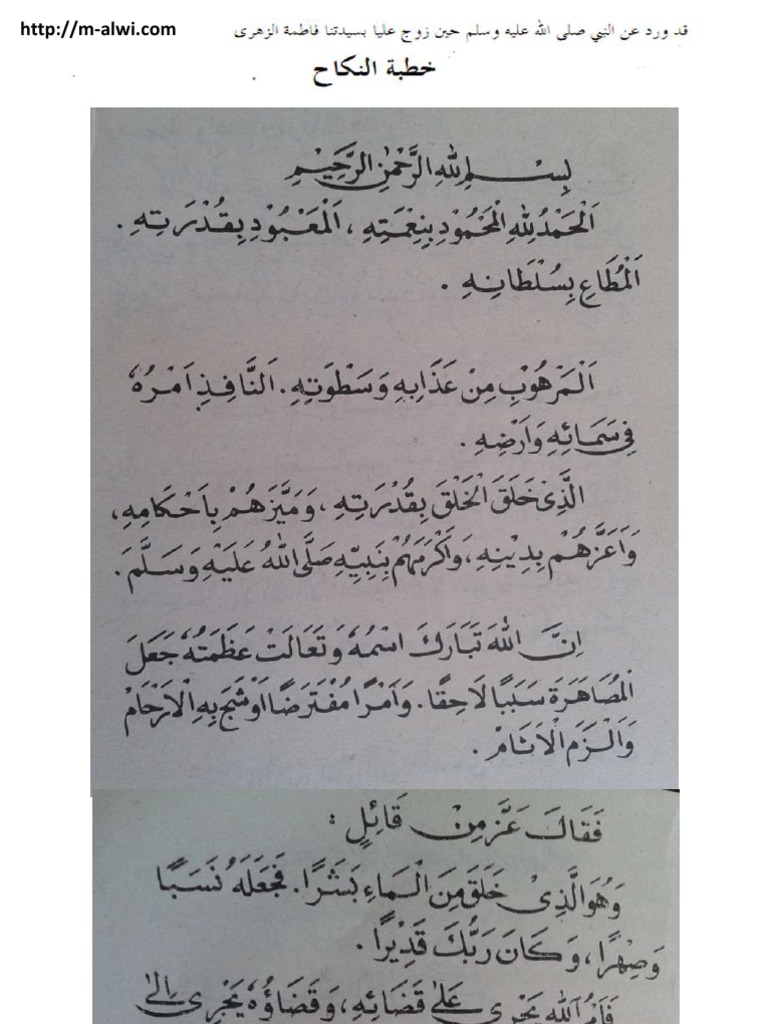 http://m-alwi.com
قد ورد عن النبي صلى الله عليه وسلم حين زوج عليا بسيدتنا فاطمة الزهرى
خطبة النكاح
بِسْـــمِ اللهِ الرَّحْمٰنِ الرَّحِيْمِ
اَلْحَمْدُ لِلّٰهِ الْمَحْمُوْدِ بِنِعْمَتِهِ ، اَلْمَعْبُوْدِ بِقُدْرَتِهِ .
اَلْمُطَاعِ بِسُلْطَانِهِ .
اَلْمَرْهُوْبِ مِنْ عَذَابِهِ وَسَطْوَتِهِ . اَلنَّافِذِ اَمْرُهُ
فِى سَمَائِهِ وَاَرْضِهِ .
الَّذِىْ خَلَقَ الْخَلْقَ بِقُدْرَتِهِ ، وَمَيَّزَهُمْ بِاَحْكَامِهِ ،
وَاَعَزَّهُمْ بِدِيْنِهِ ، وَاَكْرَمَهُمْ بِنَبِيِّهِ صَلَّى اللهُ عَلَيْهِ وَسَلَّمَ .
اِنَّ اللهَ تَبَارَكَ اسْمُهُ وَتَعَالَتْ عَظَمَتُهُ جَعَلَ
الْمُصَاهَرَةَ سَبَبًا لَاحِقًا . وَاَمْرًا مُفْتَرَضًا اَوْشَجَ بِهِ الْاَرْحَامْ
وَاَلْزَمَ الْاَنَامْ .
فَقَالَ عَزَّ مِنْ قَائِلٍ :
وَهُوَ الَّذِىْ خَلَقَ مِنَ الْمَاءِ بَشَرًا . فَجَعَلَهُ نَسَبًا
وَصِهْرًا ، وَكَانَ رَبُّكَ قَدِيْرًا .
فَاَمْرُ اللهِ يَجْرِى عَلىٰ قَضَائِهِ ، وَقَضَاؤُهُ يَجْرِى اِلىٰ